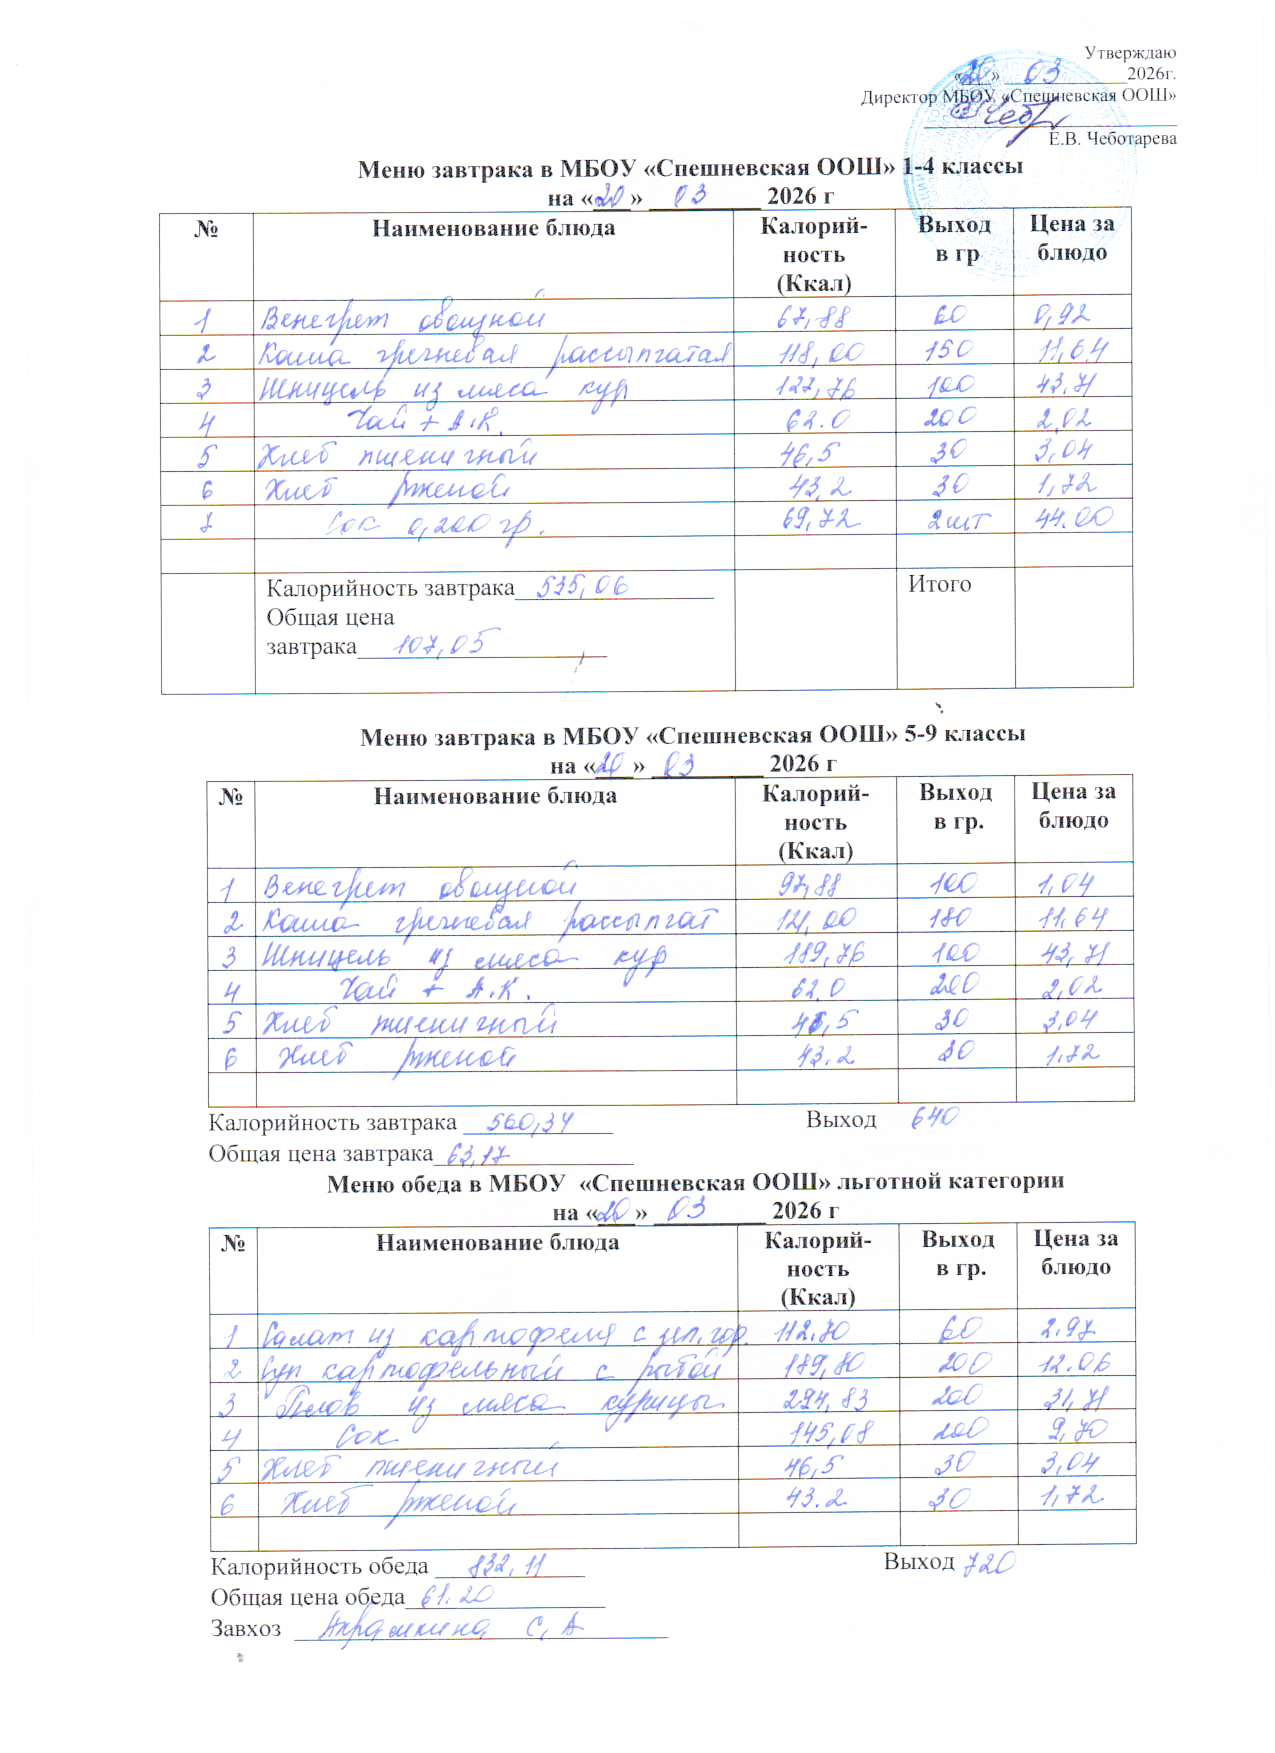 Утверждаю
«20» 03 2026г.
Директор МБОУ «Спешневская ООШ»
Е.В. Чеботарева
Меню завтрака в МБОУ «Спешневская ООШ» 1-4 классы
на «20» 03 2026 г
№ Наименование блюда Калорий-ность (Ккал) Выход в гр Цена за блюдо
1 Венегрет овощной 67,88 60 0,92
2 Каша гречневая рассыпчатая 118,00 150 11,64
3 Шницель из мяса кур 127,76 100 43,71
4 Чай + А.К. 62.0 200 2,02
5 Хлеб пшеничный 46,5 30 3,04
6 Хлеб ржаной 43,2 30 1,72
7 Сок 0,200 гр. 69,72 2шт 44.00
Калорийность завтрака 535,06 Итого
Общая цена
завтрака 107,05
Меню завтрака в МБОУ «Спешневская ООШ» 5-9 классы
на «20» 03 2026 г
№ Наименование блюда Калорий-ность (Ккал) Выход в гр. Цена за блюдо
1 Венегрет овощной 97,88 100 1,04
2 Каша гречневая рассыпчат 121,00 180 11,64
3 Шницель из мяса кур 189,76 100 43,71
4 Чай + А.К. 62.0 200 2,02
5 Хлеб пшеничный 46,5 30 3,04
6 Хлеб ржаной 43.2 30 1,72
Калорийность завтрака 560,34 Выход 640
Общая цена завтрака 63,17
Меню обеда в МБОУ «Спешневская ООШ» льготной категории
на «20» 03 2026 г
№ Наименование блюда Калорий-ность (Ккал) Выход в гр. Цена за блюдо
1 Салат из картофеля с зел.гор. 112.70 60 2.97
2 Суп картофельный с рыбой 189,80 200 12.06
3 Плов из мяса курицы 294,83 200 31,71
4 Сок 145,08 200 9,70
5 Хлеб пшеничный 46,5 30 3,04
6 Хлеб ржаной 43.2 30 1,72
Калорийность обеда 832,11 Выход 720
Общая цена обеда 61.20
Завхоз С,А